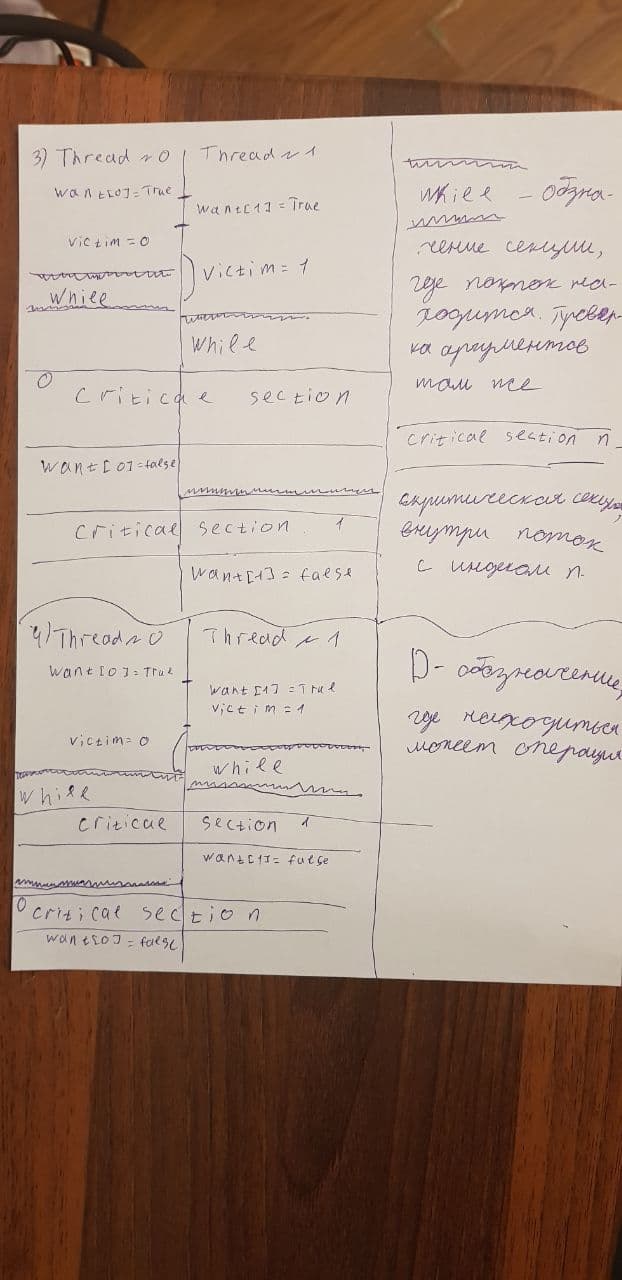 3) Thread ~ 0 Thread ~ 1
want[0]=True
want[1] = True
victim = 0
victim = 1
while
while
0 critical section
want[0]=false
critical section 1
want[1] = false
4) Thread ~ 0 Thread ~ 1
want[0]=True
want[1]=True
victim = 1
victim= 0
while
while
critical section 1
want[1]= false
0 critical section
want[0]= false
while – обозна-
чение секции,
где поток на-
ходится. Провер-
ка аргументов
там же
critical section n
критическая секция,
внутри поток
с индексом n.
D- обозначение,
где находиться
может операция